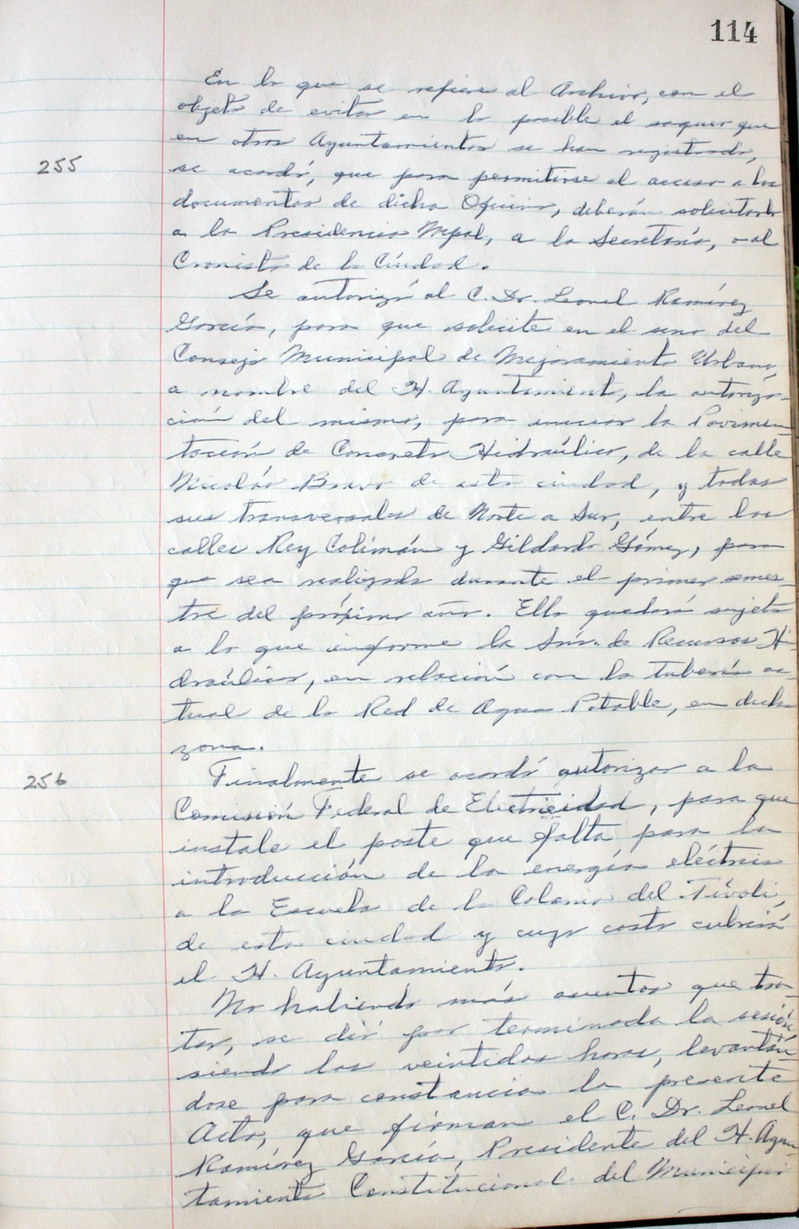 114
En lo que se refiere al Archivo, con el
objeto de evitar en lo posible el saqueo que
en otros Ayuntamientos se han registrado,
255
se acordó, que para permitirse el acceso a los
documentos de dicha Oficina, deberán solicitarlo
a la Presidencia Mpal, a la Secretaría, o al
Cronista de la Ciudad.
Se autorizó al C. Dr. Leonel Ramírez
García, para que solicite en el seno del
Consejo Municipal de Mejoramiento Urbano,
a nombre del H. Ayuntamiento, la autoriza-
ción del mismo, para iniciar la Pavimen-
tación de Concreto Hidráulico, de la calle
Nicolás Bravo de esta ciudad, y todas
sus transversales de Norte a Sur, entre las
calles Rey Colimán y Gildardo Gómez, para
que sea realizada durante el primer semes-
tre del próximo año. Ello quedará sujeto
a lo que informe la Sría. de Recursos Hi-
dráulicos, en relación con la tubería ac-
tual de la Red de Agua Potable, en dicha
zona.
256
Finalmente se acordó autorizar a la
Comisión Federal de Electricidad, para que
instale el poste que falta para la
introducción de la energía eléctrica
a la Escuela de la Colonia del Tívoli,
de esta ciudad y cuyo costo cubrirá
el H. Ayuntamiento.
No habiendo más asuntos que tra-
tar, se dió por terminada la sesión,
siendo las veintidos horas, levantán-
dose para constancia la presente
Acta, que firman el C. Dr. Leonel
Ramírez García, Presidente del H. Ayun-
tamiento Constitucional del Municipio